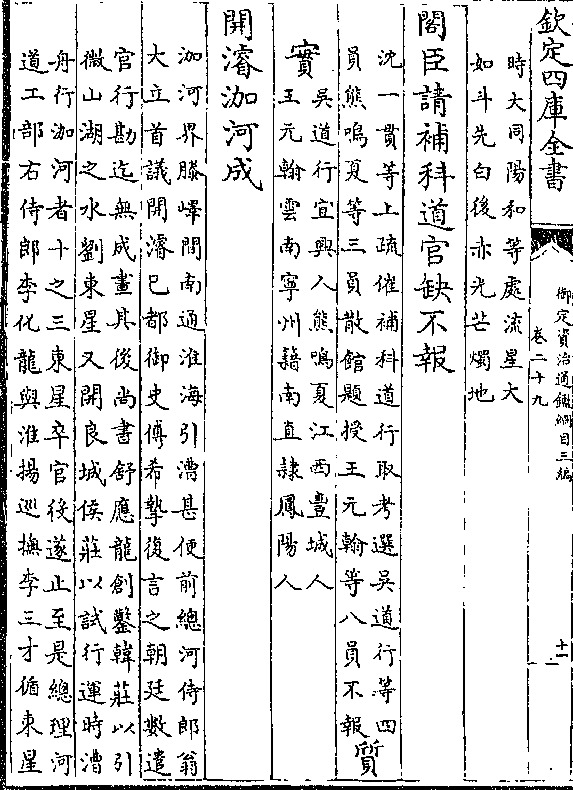 欽定四庫全書
御定資治通鑑綱目三編
卷二十九
十一
時大同陽和等處流星大
如斗先白後赤光芒燭地
閣臣請補科道官缺不報
沈一貫等上疏催補科道行取考選吳道行等四
員熊鳴夏等三員散館題授王元翰等八員不報
質
實
吳道行宜興人熊鳴夏江西豐城人
王元翰雲南寧州籍南直隸鳳陽人
開濬泇河成
泇河界滕嶧間南通淮海引漕甚便前總河侍郎翁
大立首議開濬已都御史傅希摯復言之朝廷數遣
官行勘迄無成畫其後尚書舒應龍創鑿韓莊以引
微山湖之水劉東星又開良城侯莊以試行運時漕
舟行泇河者十之三東星卒官役遂止至是總理河
道工部右侍郎李化龍與淮揚巡撫李三才循東星